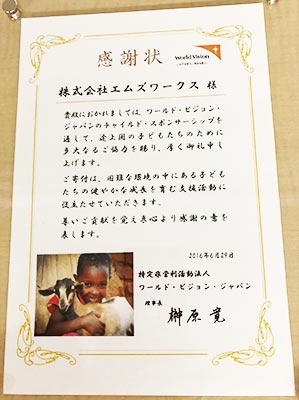 感謝状
World Vision
株式会社エムズワークス 様
貴殿におかれましては、ワールド・ビジョン・
ジャパンのチャイルド・スポンサーシップを
通して、途上国の子どもたちのために
多大なるご協力を賜り、厚く御礼申し
上げます。
ご寄付は、困難な環境の中にある子ども
たちの健やかな成長を育む支援活動に
役立たせていただきます。
尊いご貢献を覚え衷心より感謝の意を
表します。
2016年6月29日
特定非営利活動法人
ワールド・ビジョン・ジャパン
理事長
榊原 寛